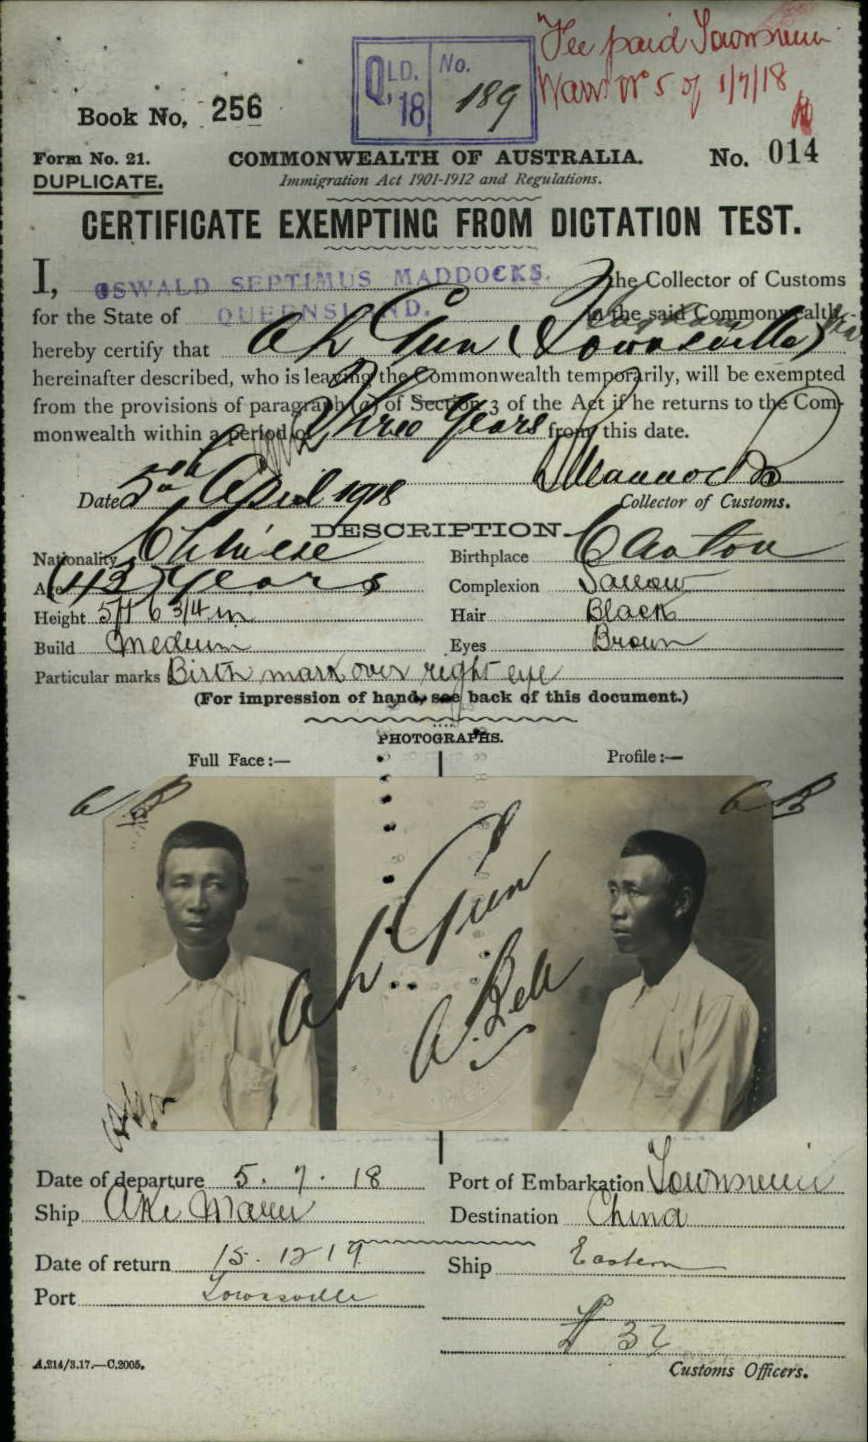 Fee paid Townsville
QLD. No.
18 189
Warr No 5 of 1/7/18
Book No. 256
Form No. 21.
COMMONWEALTH OF AUSTRALIA.
No. 014
DUPLICATE.
Immigration Act 1901-1912 and Regulations.
CERTIFICATE EXEMPTING FROM DICTATION TEST.
I, OSWALD SEPTIMUS MADDOCKS. the Collector of Customs
for the State of QUEENSLAND. in the said Commonwealth,
hereby certify that Ah Gun (Townsville)
hereinafter described, who is leaving the Commonwealth temporarily, will be exempted
from the provisions of paragraph (a) of Section 3 of the Act if he returns to the Com-
monwealth within a period of Three Years from this date.
Date 5th April 1918
Collector of Customs.
DESCRIPTION.
Nationality Chinese
Birthplace Canton
Age (43) years
Complexion Sallow
Height 5ft 6 3/4 in
Hair Black
Build Medium
Eyes Brown
Particular marks Birth mark over right eye
(For impression of hand, see back of this document.)
PHOTOGRAPHS.
Full Face:—
Profile:—
Ah Gun
A. Bell
Date of departure 5. 7. 18
Port of Embarkation Townsville
Ship Aki Maru
Destination China
Date of return 15. 12 19
Ship Eastern
Port Townsville
32
A.214/3.17.—C.2005.
Customs Officers.